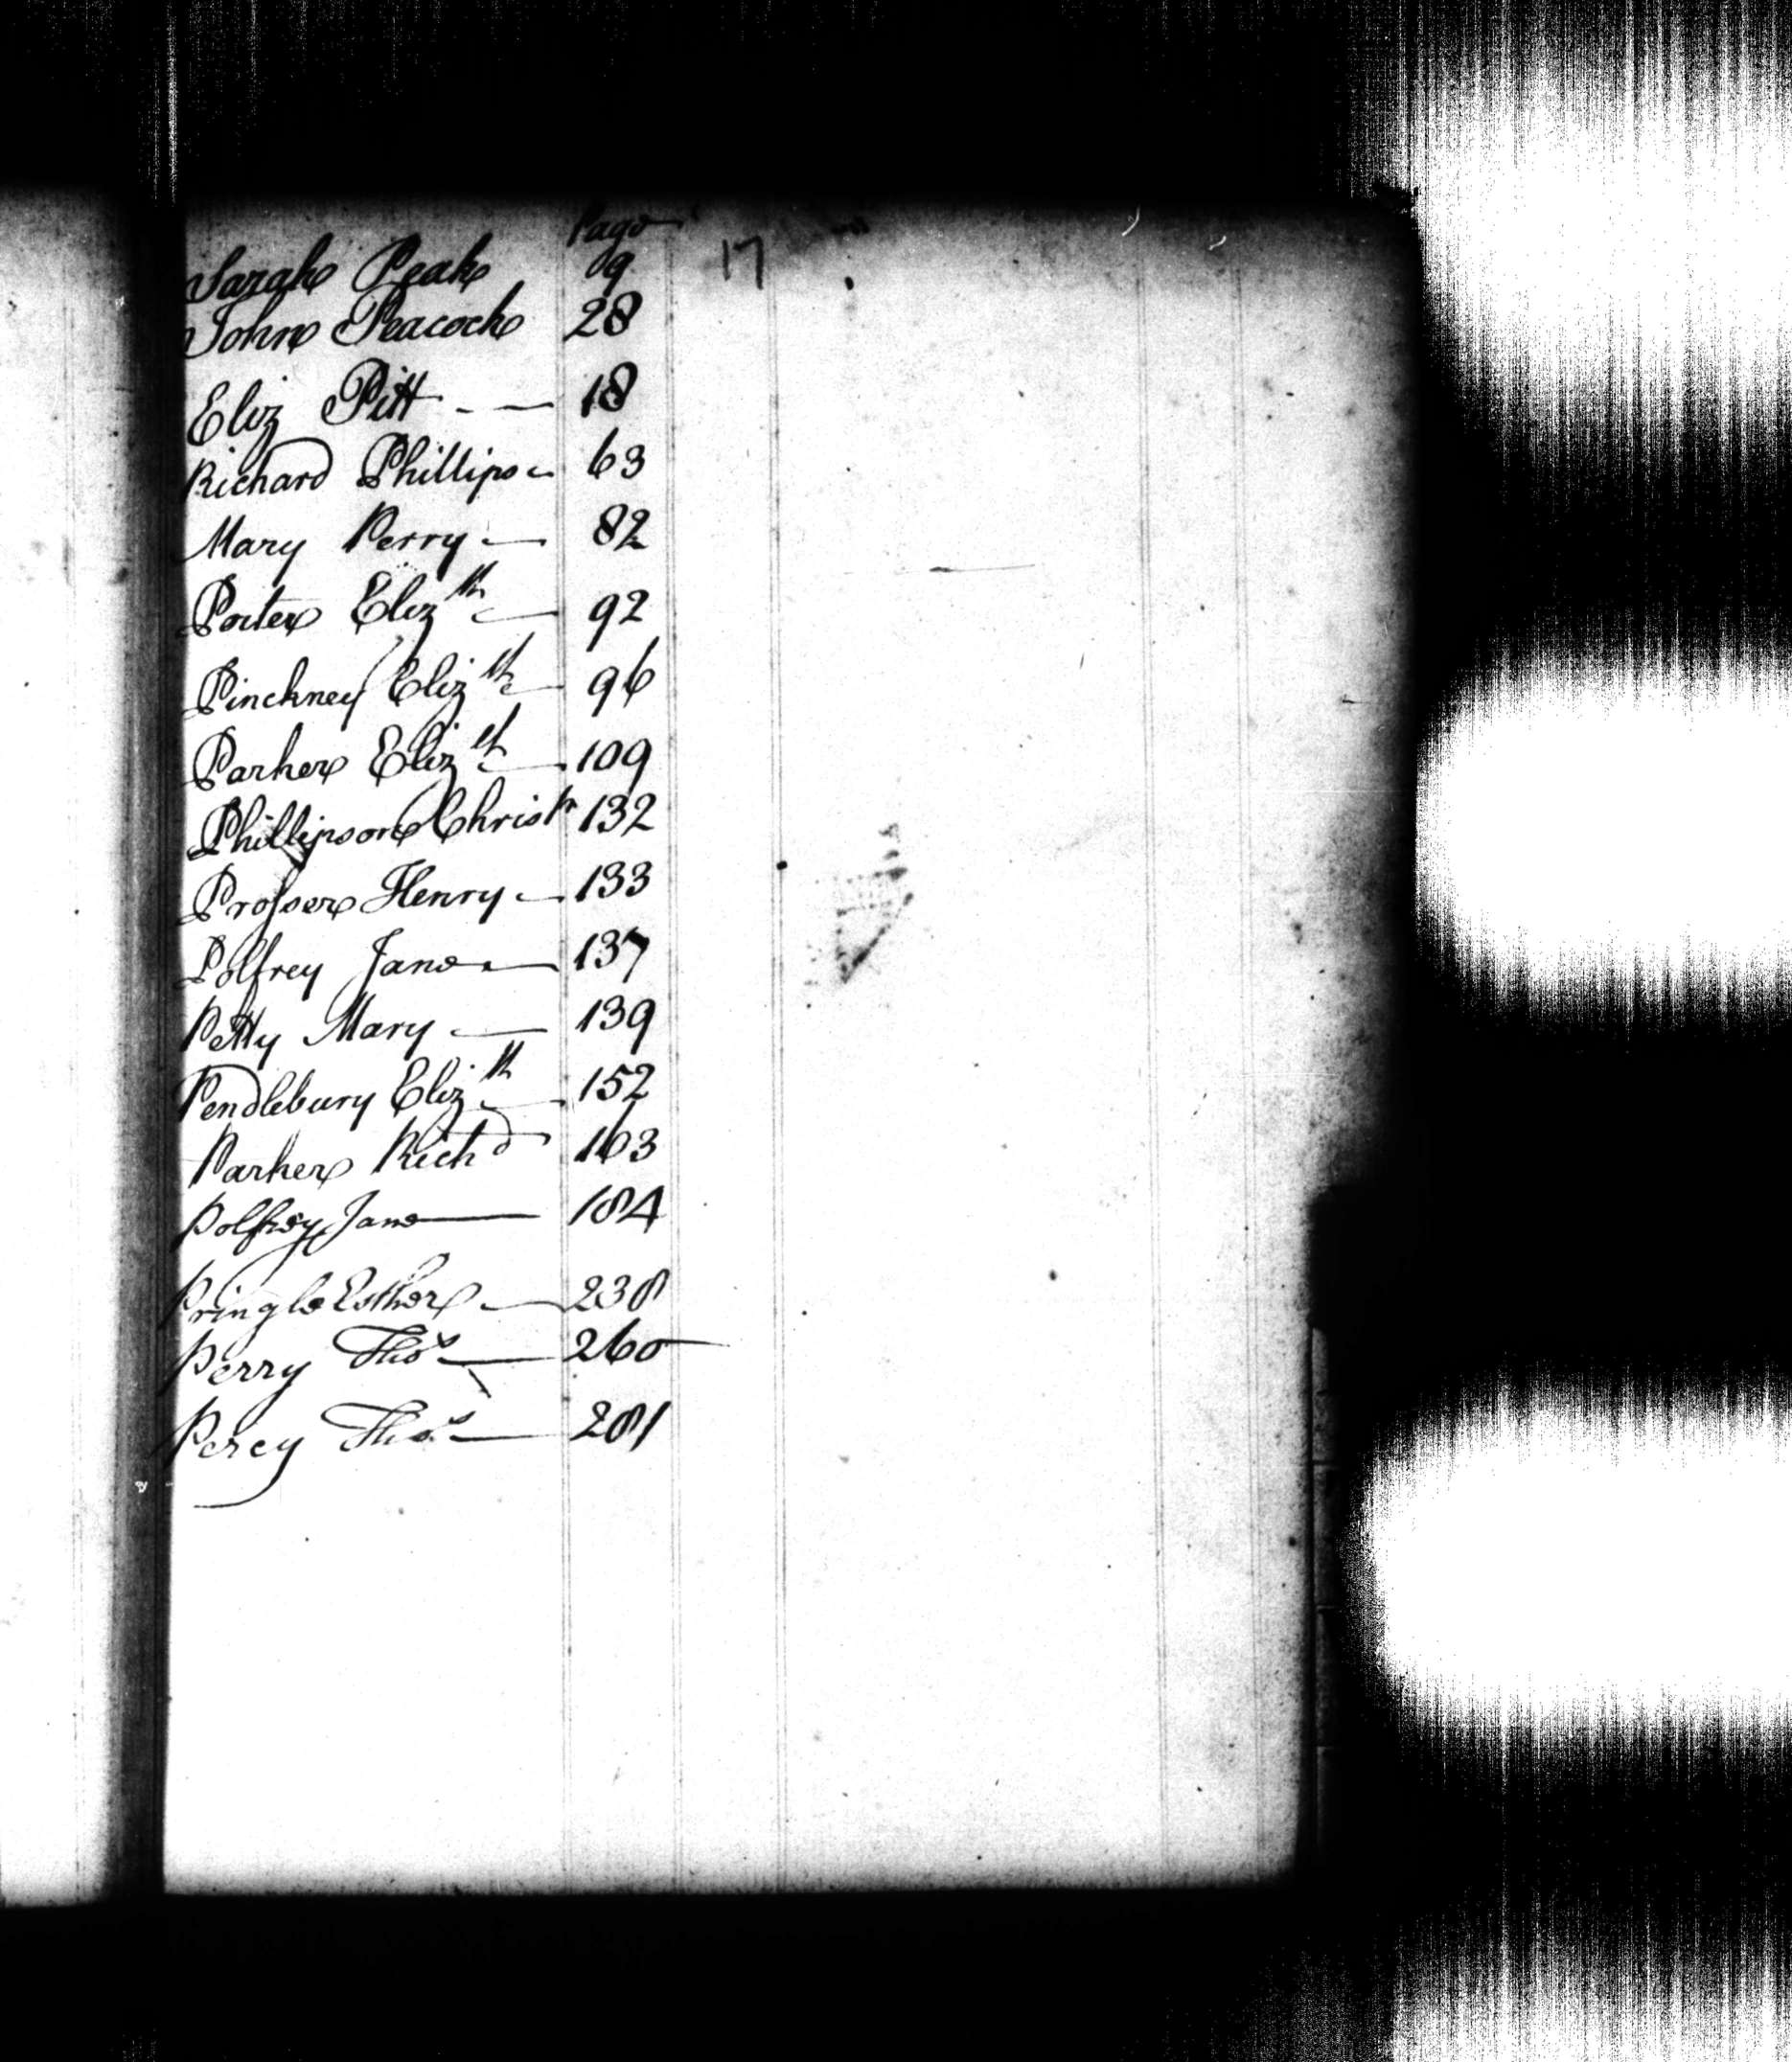 Page
Sarah Peak 9 17
John Peacock 28
Eliz Pitt - — 18
Richard Phillips - 63
Mary Perry — 82
Porter Eliz th — 92
Pinckney Eliz th — 96
Parker Eliz th — 109
Phillipson Christr 132
Proſser Henry — 133
Polfrey Jane — 137
Petty Mary — 139
Pendlebury Eliz th — 152
Parker Richd 163
Polfrey Jane — 184
Pringle Esther — 238
Perry Thos — 260
Percy Thos — 281